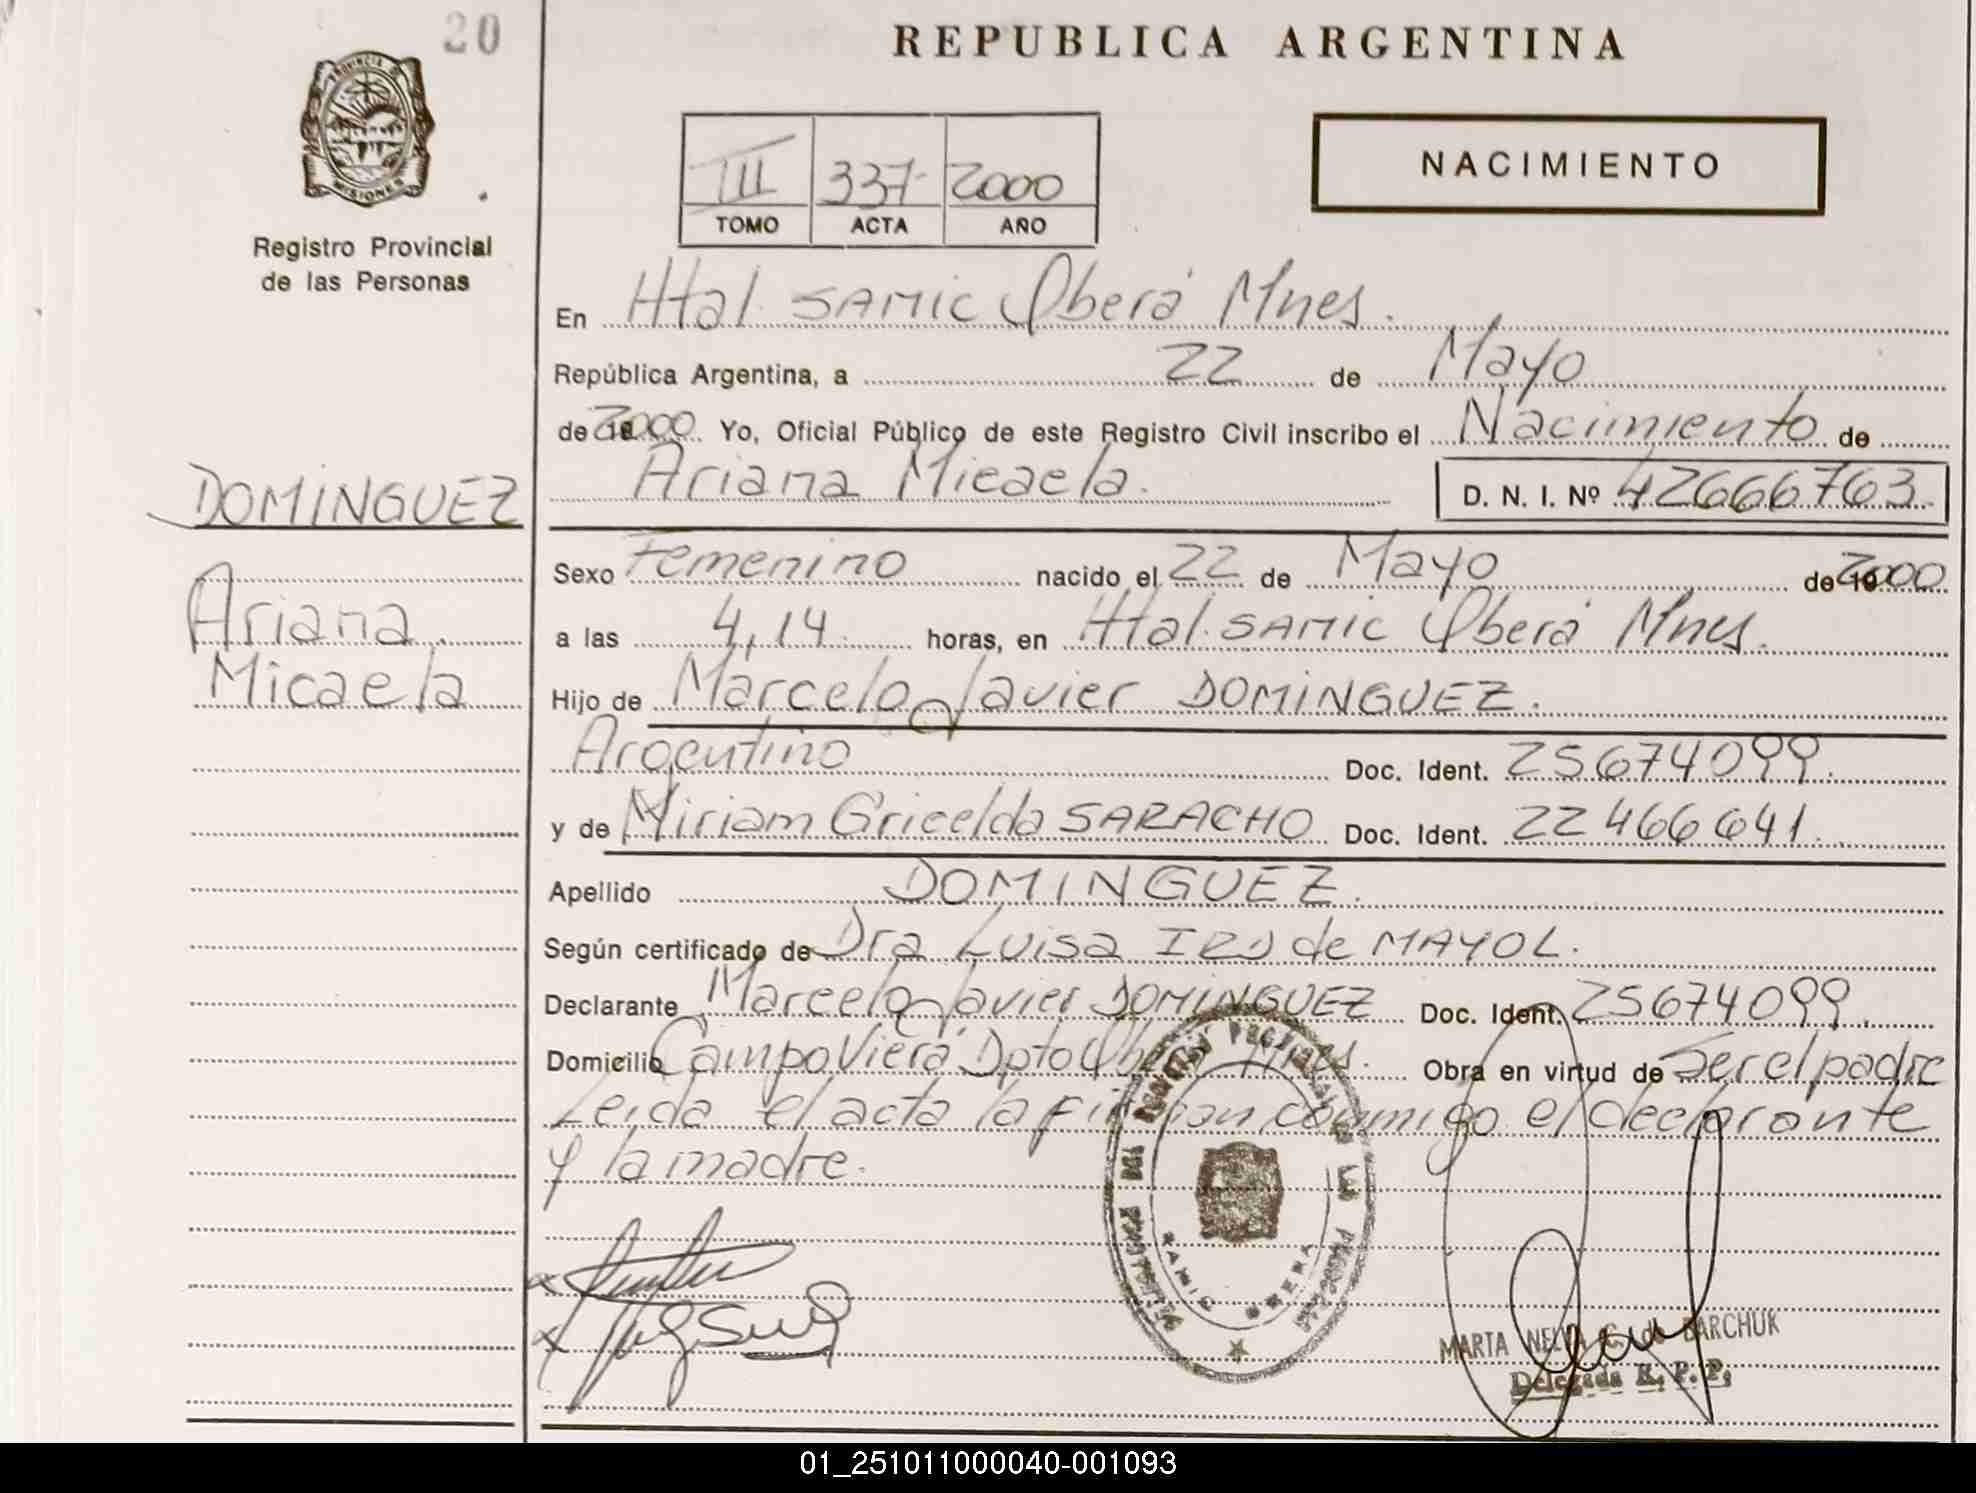 20
REPUBLICA ARGENTINA
PROVINCIA DE
MISIONES
Registro Provincial
de las Personas
III 337 2000
TOMO ACTA AÑO
NACIMIENTO
En Htal. SAMIC Oberá Mnes.
República Argentina, a 22 de Mayo
de 2000 Yo, Oficial Público de este Registro Civil inscribo el Nacimiento de
Ariana Micaela. D. N. I. Nº 42666763
DOMINGUEZ
Ariana
Micaela
Sexo Femenino nacido el 22 de Mayo de 2000
a las 4,14 horas, en Htal. SAMIC Oberá Mnes.
Hijo de Marcelo Javier DOMINGUEZ.
Argentino Doc. Ident. 25674099.
y de Miriam Gricelda SARACHO Doc. Ident. 22466641.
Apellido DOMINGUEZ.
Según certificado de Dra Luisa de MAYOL.
Declarante Marcelo Javier DOMINGUEZ Doc. Ident. 25674099.
Domicilio Campo Viera Dpto Oberá Mnes. Obra en virtud de Ser el padre
Leida el acta la firman conmigo el declarante
y la madre.
SAMIC OBERA
MARTA NELVA C. de BARCHUK
Delegada R. P. P.
01_251011000040-001093